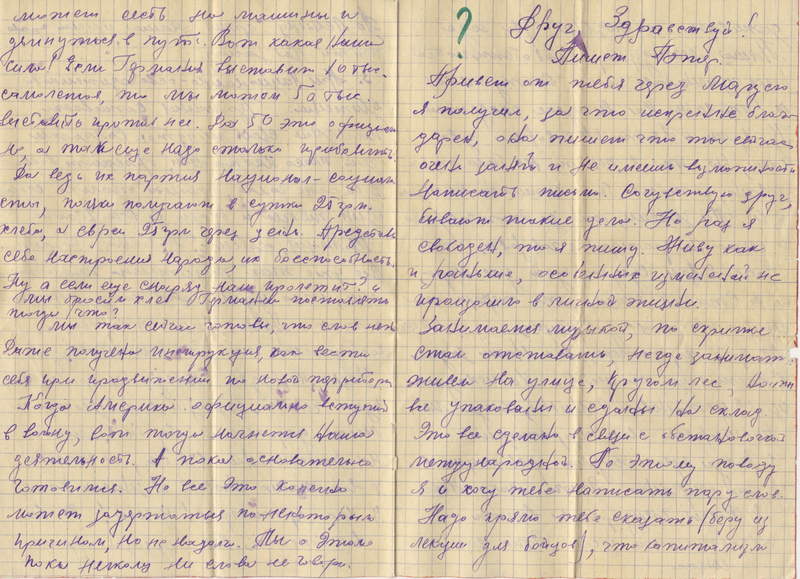 может сесть на машины и
двинуться в путь. Вот какая наша
сила! Если Германия выставит 10 тыс.
самолетов, то мы можем 50 тыс.
выставить против нее. Да 50 это официаль
но, а так еще надо столько прибавить.
Да ведь их партия национал-социал
исты, поляки получают в сутки 25 грм.
хлеба, а евреи 25 грм через день. Представь
себе настроения народа, их боеспособность.
Ну а если еще снаряд наш пролетит? а
мы бросим хлеб Германии поставлять
тогда что?
Мы так сейчас готовы, что слов нет
Даже получена инструкция, как вести
себя при продвижении по новой территории
Когда Америка официально вступит
в войну, вот тогда начнется наша
деятельность. А пока основательно
готовимся. Но все это конечно
может задержаться по некоторым
причинам, но не надолго. Ты о этом
пока никому ни слова не говори.
?
Друг, Здравствуй!
Пишет Пётр.
Привет от тебя через Марусю
я получил, за что искренне благо
дарен, она пишет что ты сейчас
очень занят и не имеешь возможности
написать письмо. Сочувствую друг,
бывают такие дела. Но раз я
свободен, то я пишу. Живу как
и раньше, особенных изменений не
произошло в личной жизни.
Занимаемся музыкой, по скрипке
стал отставать, негде заниматься
живем на улице, кругом лес,
все упаковали и сдали на склад.
Это все сделано в связи с обстановкой
международной. По этому поводу
я и хочу тебе написать пару слов.
Надо прямо тебе сказать (беру из
лекции для бойцов), что капитализм